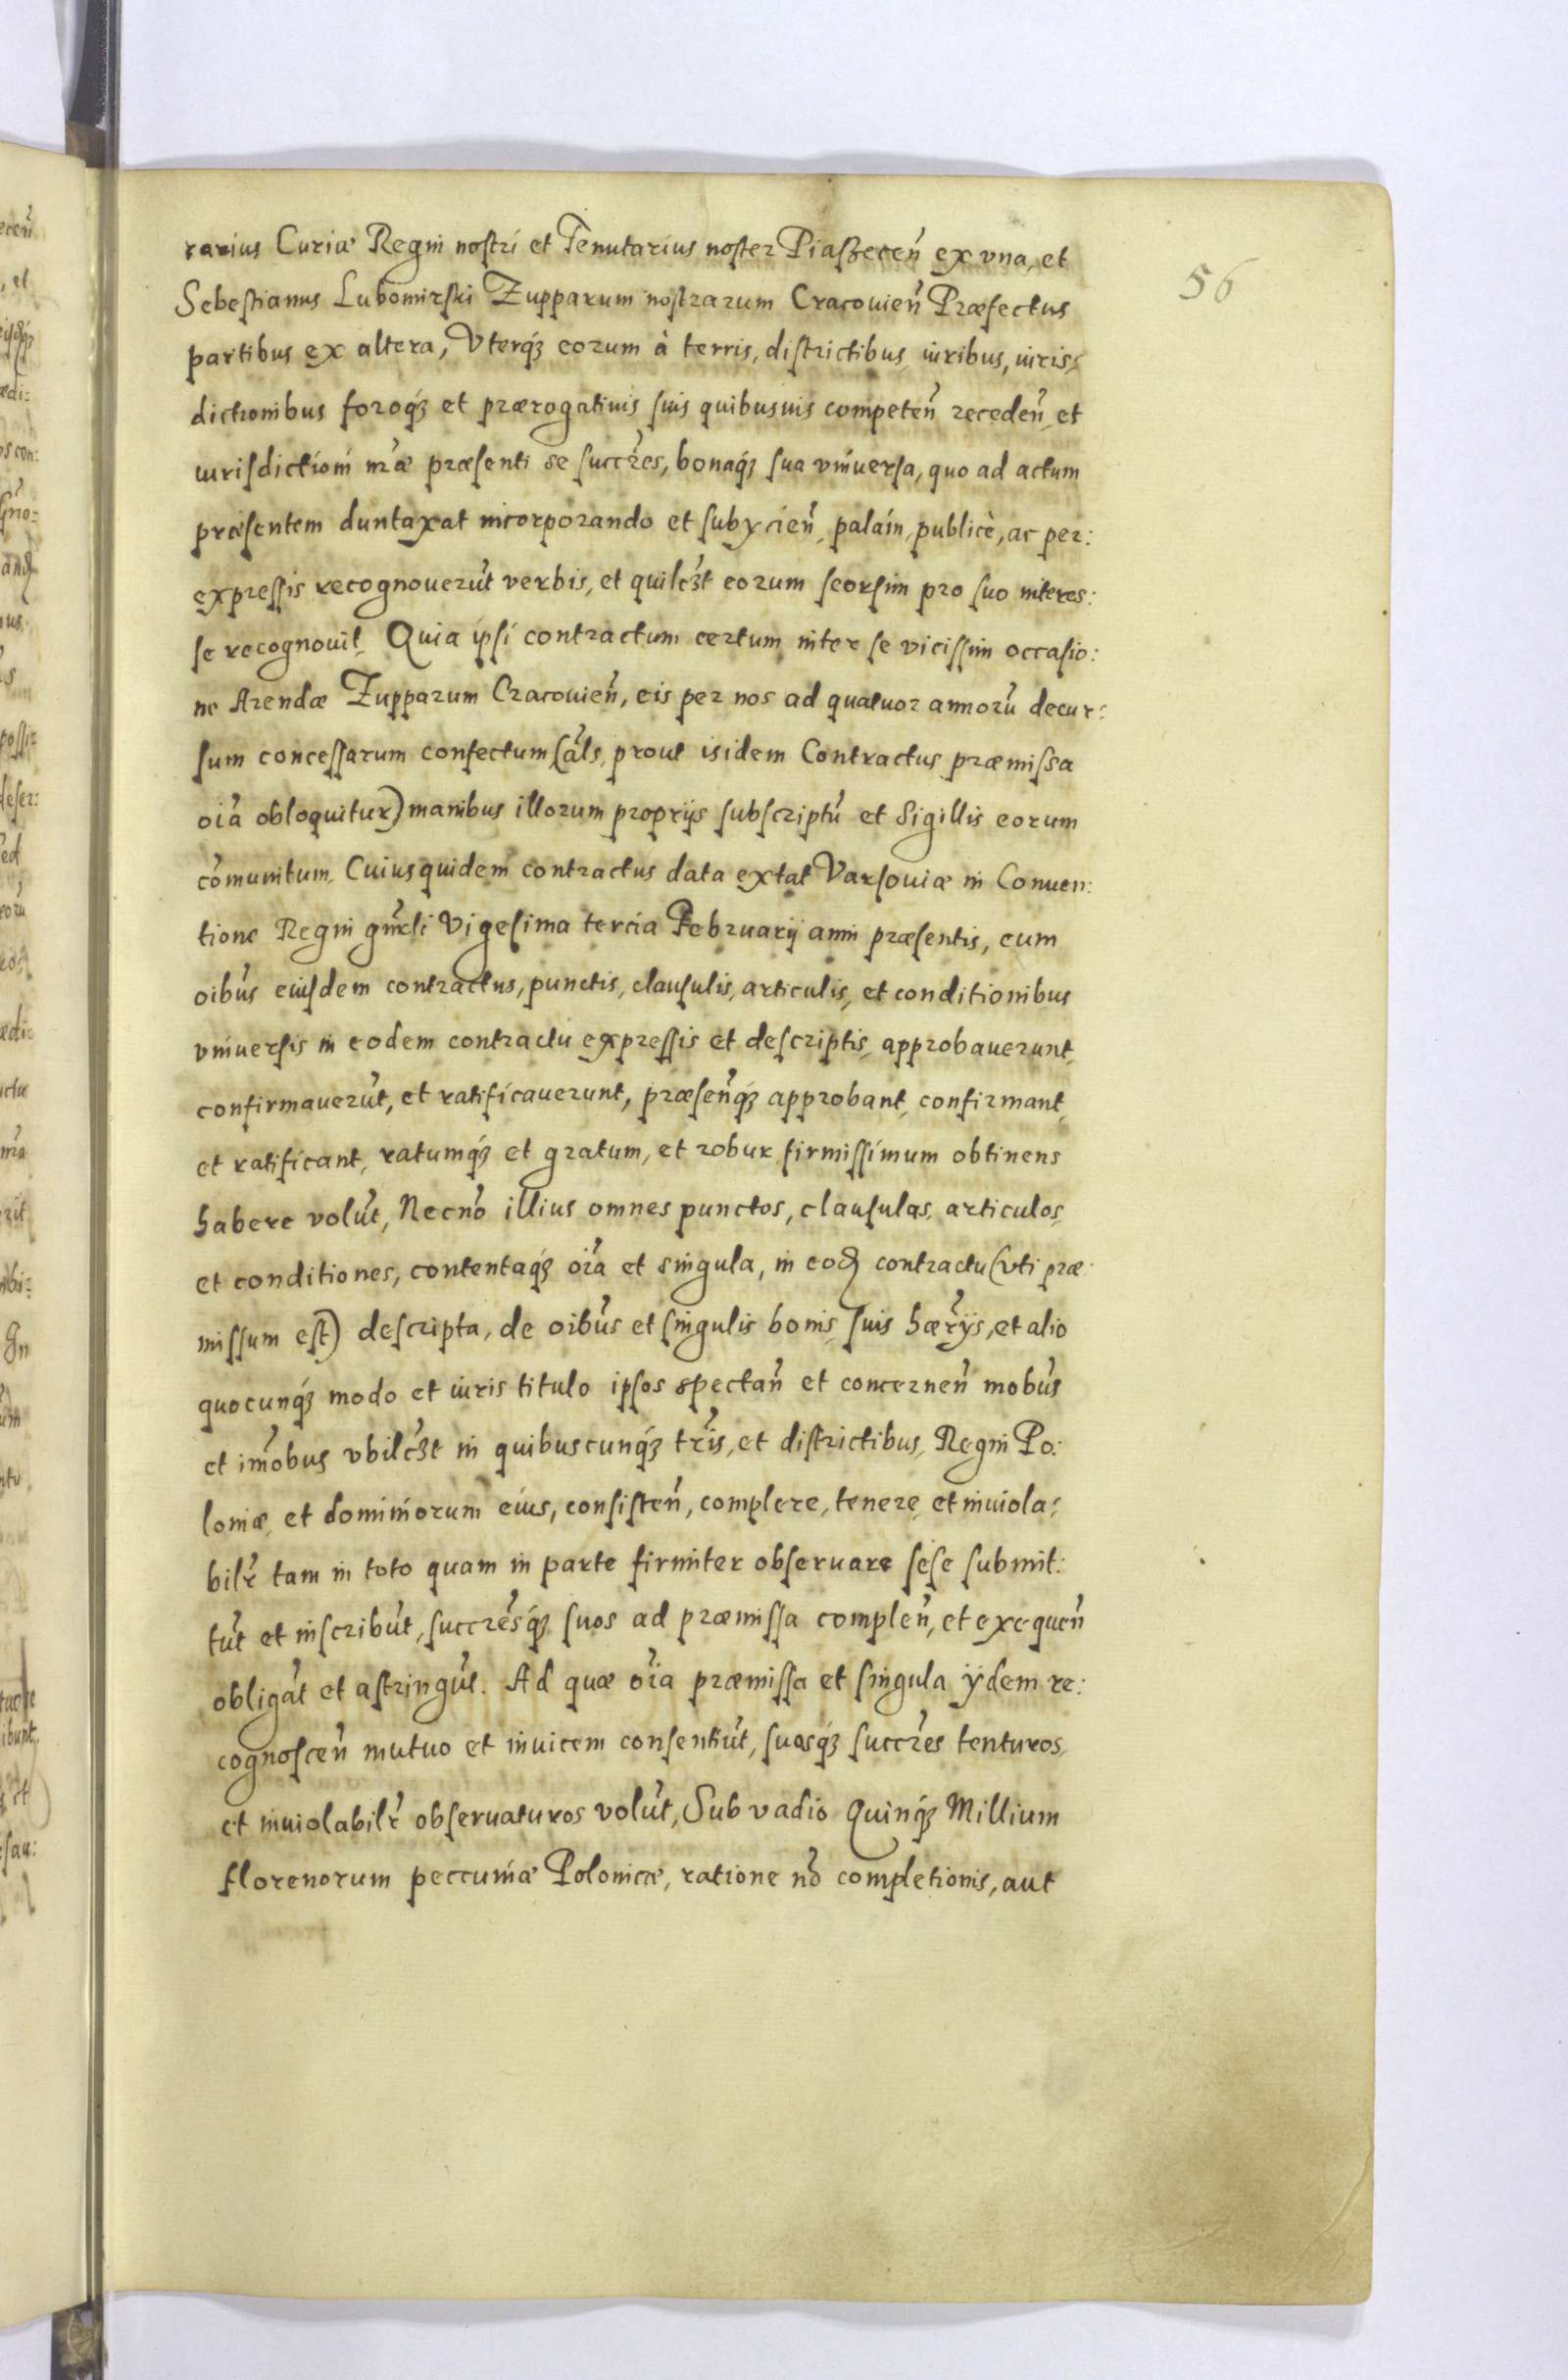 rarius Curiæ Regni nostri et Tenutarius noster Piaszecen̄ ex vna, et
56
Sebestianus Lubomirski Zupparum nostrarum Cracouien̄ Præfectus
partibus ex altera, Vterq́ꝫ eorum à terris, districtibus, iuribus, iuris,
dictionibus foroq́ꝫ et prærogatiuis suis quibusuis competen̄ receden̄, et
iurisdictioni nr̄æ præsenti se succr̄es, bonaq́ꝫ sua vniuersa, quo ad actum
præsentem duntaxat incorporando et subycien̄, palam, publicè, ac per:
expressis recognouerūt verbis, et quilꝫt eorum seorsim pro suo interes:
se recognouit. Quia ipsi contractum certum inter se vicissim occasio:
ne Arendæ Zupparum Cracouien̄, eis per nos ad quatuor annorū decur:
sum concessarum confectum (āls, prout isidem Contractus præmissa
oīa obloquitur) manibus illorum proprijs subscriptū et Sigillis eorum
cōmunitum. Cuiusquidem contractus data extat Varsouiæ in Conuen:
tione Regni gn̄rli Vigesima tercia Februarij anni præsentis, cum
oibūs eiusdem contractus, punctis, clausulis, articulis, et conditionibus
vniuersis in eodem contractu expressis et descriptis, approbauerunt,
confirmauerūt, et ratificauerunt, præsen̄q́ꝫ approbant, confirmant,
et ratificant, ratumq́ꝫ et gratum, et robur firmissimum obtinens
habere volūt, Necnō illius omnes punctos, clausulas, articulos,
et conditiones, contentaq́ꝫ oīa et singula, in eoꝺ contractu (vti præ:
missum est) descripta, de oibūs et singulis bonis suis hær̄ijs, et alio
quocunq́ꝫ modo et iuris titulo ipsos spectan̄ et concernen̄ mobūs
et im̄obus vbilꝫt in quibuscunq́ꝫ tr̄is, et districtibus, Regni Po:
loniæ, et dominiorum eius, consisten̄, complere, tenere, et inuiola:
bilr̄ tam in toto quam in parte firmiter obseruare sese submit:
tūt et inscribūt, succr̄esq́ꝫ suos ad præmissa complen̄, et exequen̄
obligāt et astringūt. Ad quæ oīa præmissa et singula ÿdem re:
cognoscen̄ mutuo et inuicem consentiūt, suosq́ꝫ succr̄es tenturos,
et inuiolabilr̄ obseruaturos volūt, Sub vadio Quinq́ꝫ Millium
florenorum peccuniæ Polonicæ, ratione nō completionis, aut